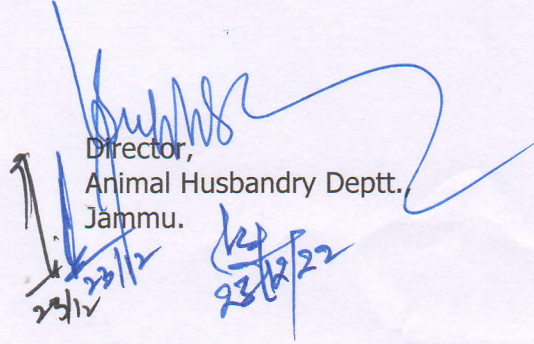 Director,
Animal Husbandry Deptt.,
Jammu.
23/12
23/12
23/12/22